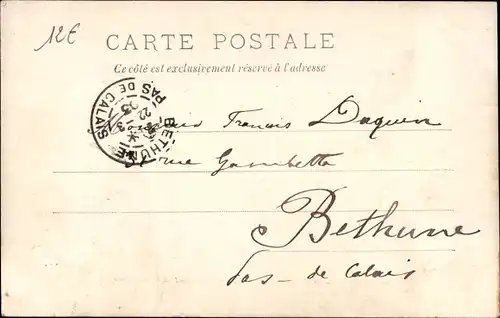 12€
CARTE POSTALE
Ce côté est exclusivement réservé à l'adresse
BETHUNE
PAS DE CALAIS
Francois Daquin
rue Gambetta
Bethune
Pas-de Calais